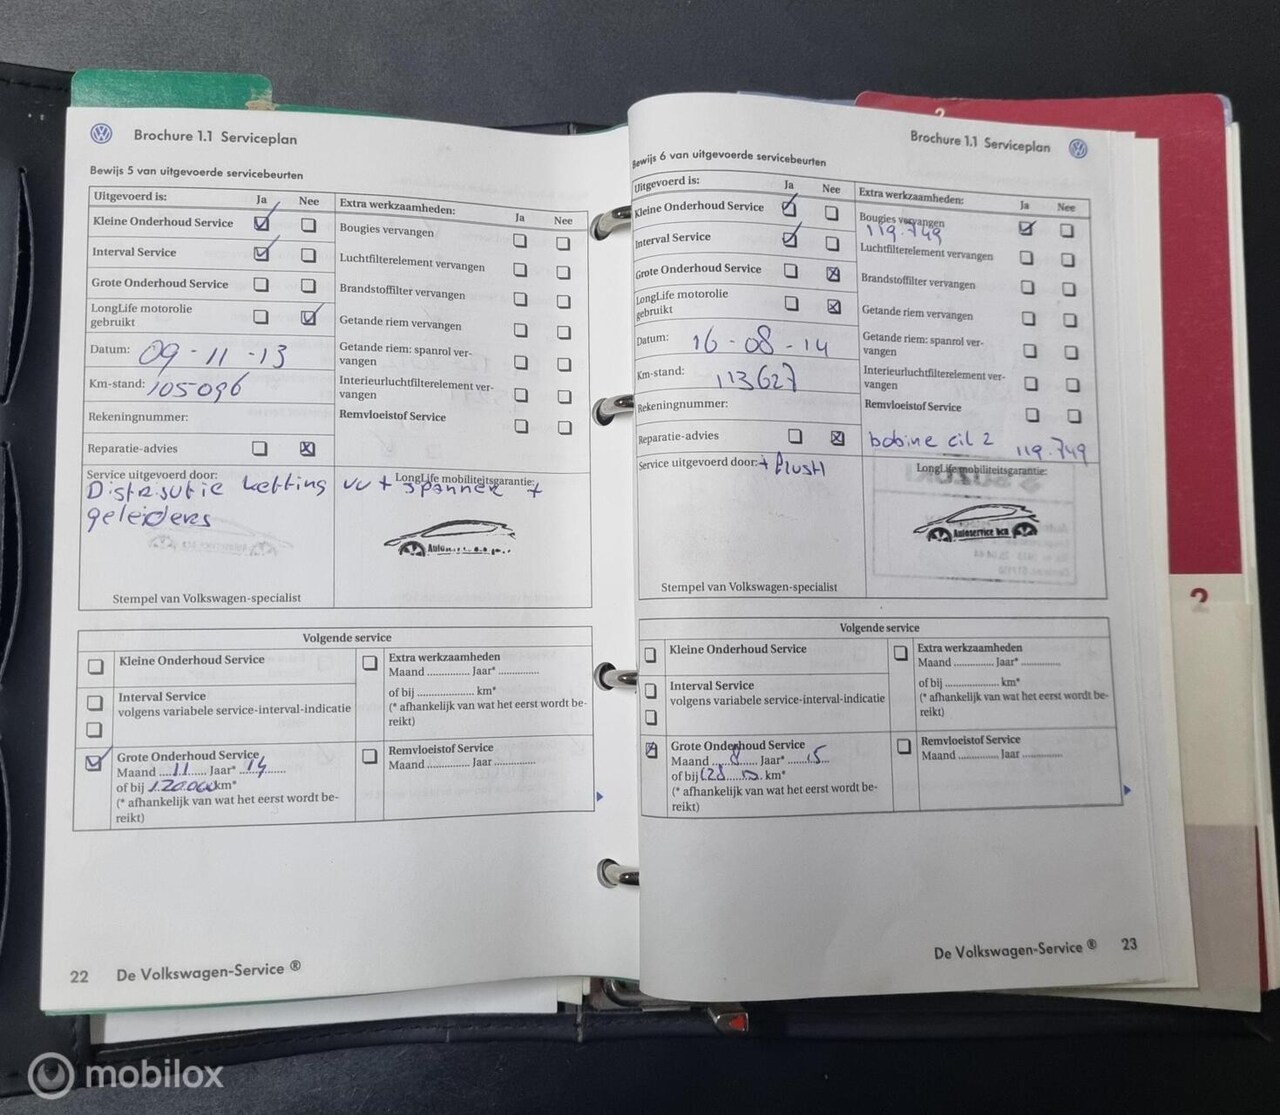 Brochure 1.1 Serviceplan
Bewijs 5 van uitgevoerde servicebeurten
Uitgevoerd is: Ja Nee
Kleine Onderhoud Service
Interval Service
Grote Onderhoud Service
LongLife motorolie
gebruikt
Datum: 09-11-13
Km-stand: 105096
Rekeningnummer:
Reparatie-advies
Extra werkzaamheden: Ja Nee
Bougies vervangen
Luchtfilterelement vervangen
Brandstoffilter vervangen
Getande riem vervangen
Getande riem: spanrol ver-
vangen
Interieurluchtfilterelement ver-
vangen
Remvloeistof Service
Service uitgevoerd door:
LongLife mobiliteitsgarantie:
Distributie ketting vv + spanner +
geleiders
Stempel van Volkswagen-specialist
Volgende service
Kleine Onderhoud Service
Interval Service
volgens variabele service-interval-indicatie
Grote Onderhoud Service
Maand ....11...... Jaar* ..14........
of bij 120.000 km*
(* afhankelijk van wat het eerst wordt be-
reikt)
Extra werkzaamheden
Maand .............. Jaar* ..............
of bij .................... km*
(* afhankelijk van wat het eerst wordt be-
reikt)
Remvloeistof Service
Maand .............. Jaar ..............
22 De Volkswagen-Service ®
Brochure 1.1 Serviceplan
Bewijs 6 van uitgevoerde servicebeurten
Uitgevoerd is: Ja Nee
Kleine Onderhoud Service
Interval Service
Grote Onderhoud Service
LongLife motorolie
gebruikt
Datum: 16-08-14
Km-stand: 113627
Rekeningnummer:
Reparatie-advies
Extra werkzaamheden: Ja Nee
Bougies vervangen
119.749
Luchtfilterelement vervangen
Brandstoffilter vervangen
Getande riem vervangen
Getande riem: spanrol ver-
vangen
Interieurluchtfilterelement ver-
vangen
Remvloeistof Service
bobine cil 2 119.749
Service uitgevoerd door: + flush
LongLife mobiliteitsgarantie:
Autoservice bca
Stempel van Volkswagen-specialist
Volgende service
Kleine Onderhoud Service
Interval Service
volgens variabele service-interval-indicatie
Grote Onderhoud Service
Maand ...8...... Jaar* ......15...
of bij km*
(* afhankelijk van wat het eerst wordt be-
reikt)
Extra werkzaamheden
Maand .............. Jaar* ..............
of bij .................... km*
(* afhankelijk van wat het eerst wordt be-
reikt)
Remvloeistof Service
Maand .............. Jaar ..............
De Volkswagen-Service ® 23
2
2
mobilox